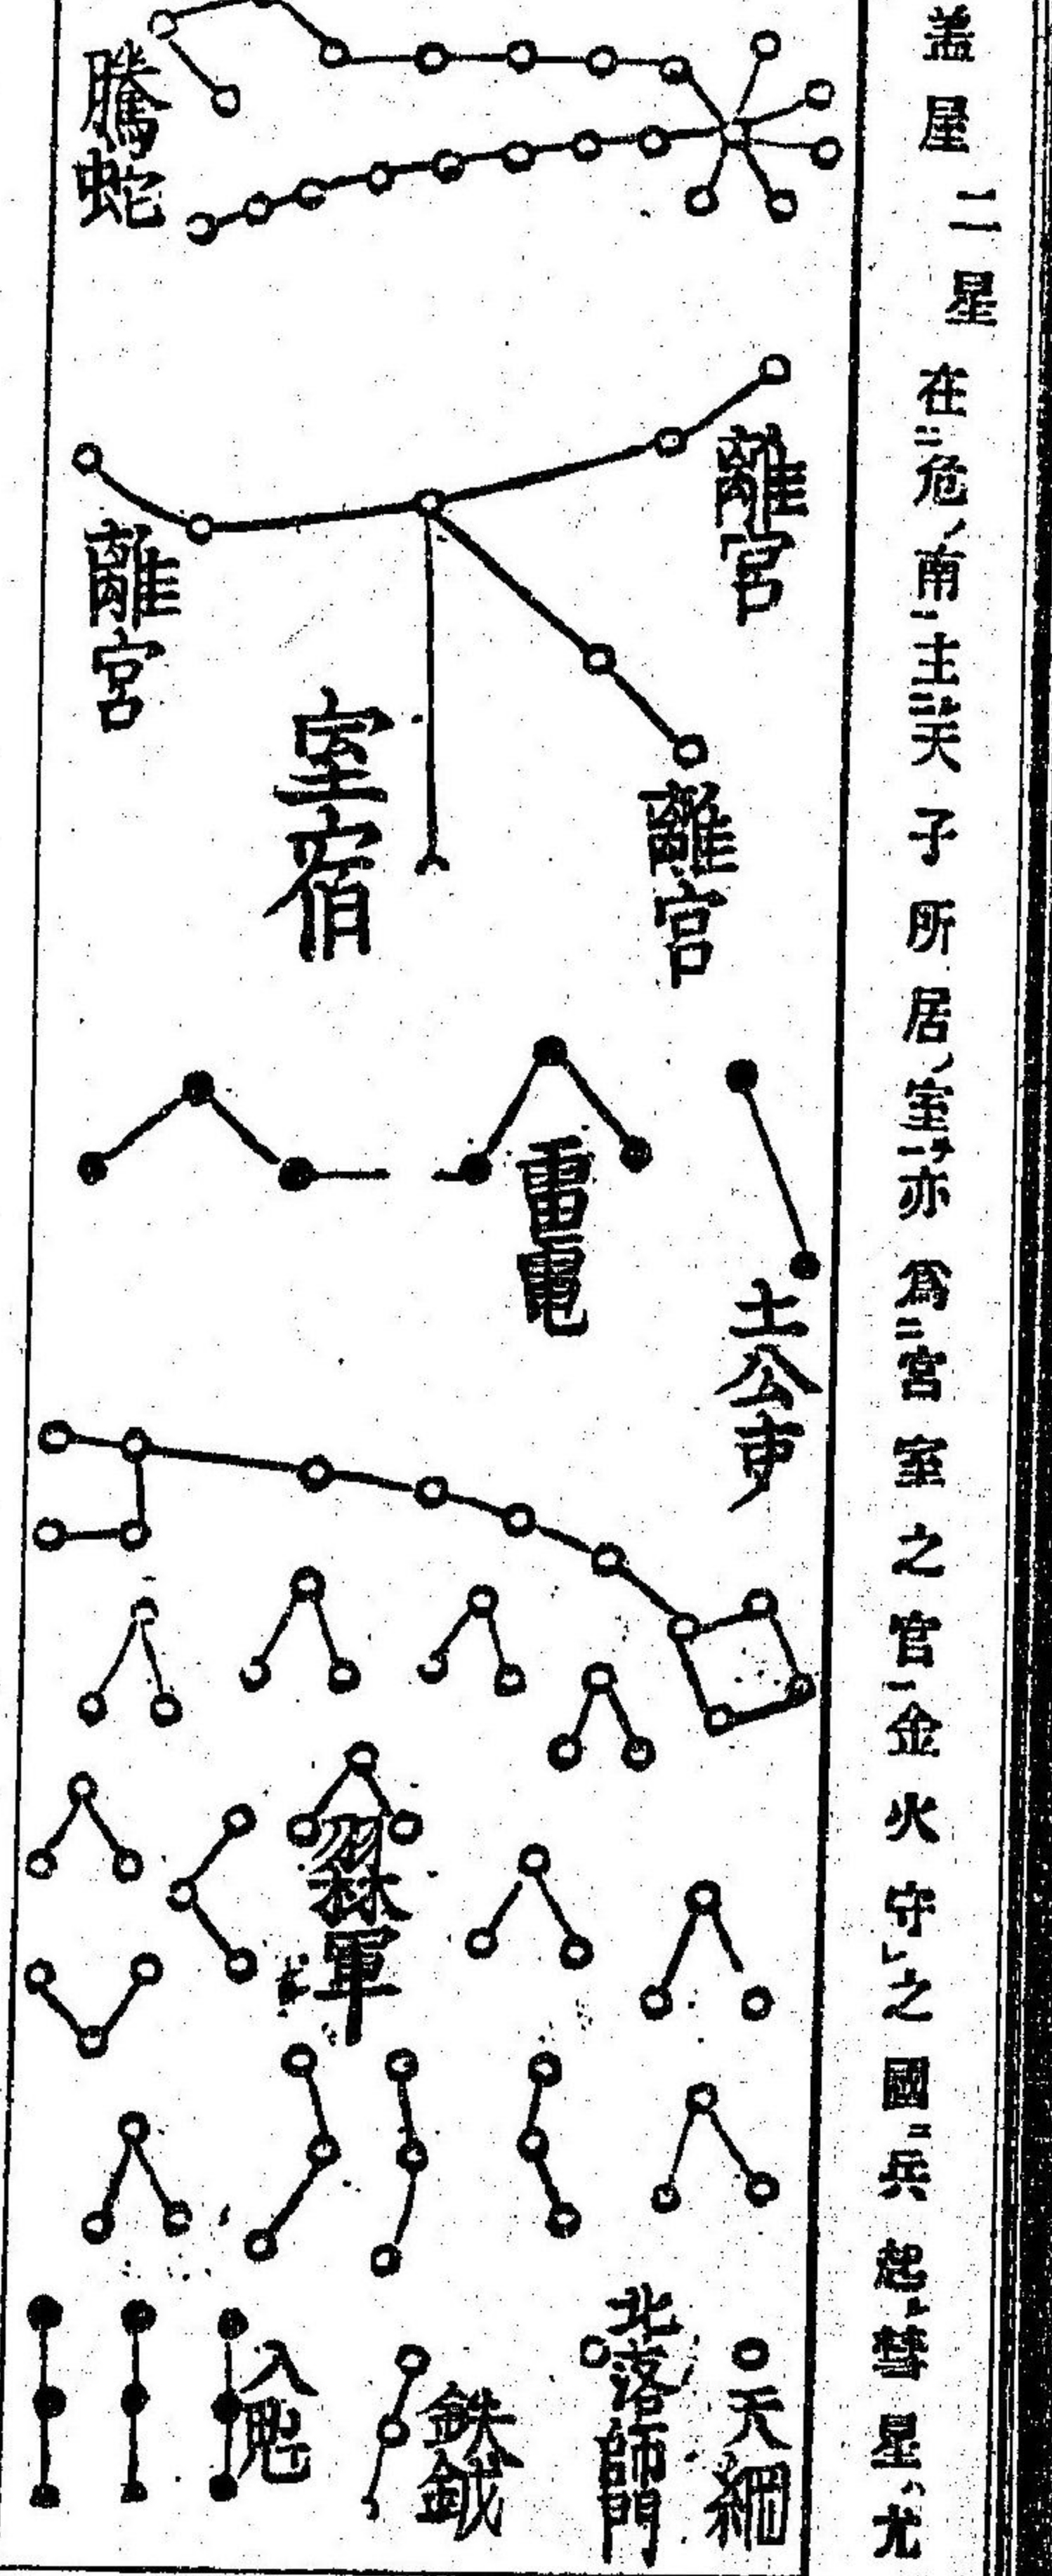 盖屋二星在危南主天子所居室亦為宮室之官金火守之國兵起彗星尤
騰蛇
離宮
離宮
室宿
離宮
雷電
土公吏
羽林軍
天綱
北落師門
鈇鉞
八魁